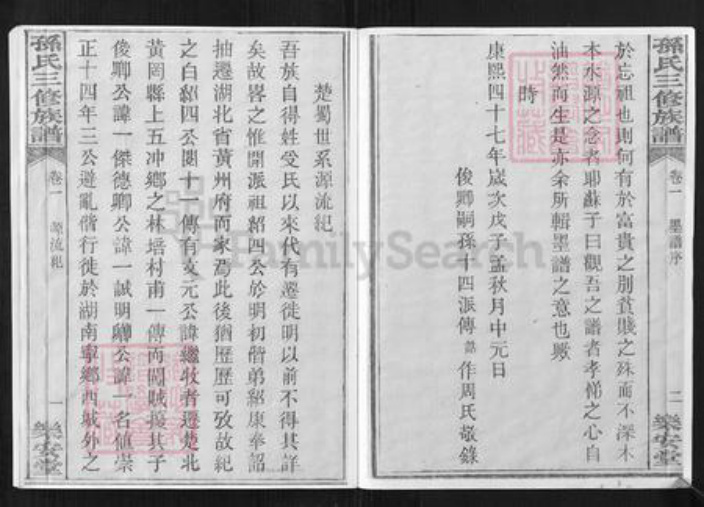 孫氏三修族譜
卷一
墨譜序
二
樂安堂
於忘祖也則何有於富貴之別貧賤之殊而不深木
本水源之念者耶蘇子曰觀吾之譜者孝悌之心自
油然而生是亦余所輯墨譜之意也歟
時
康熙四十七年歲次戊子孟秋月中元日
俊卿嗣孫十四派傳 作周氏敬錄
楚蜀世系源流紀
吾族自得姓受氏以來代有遷徙明以前不得其詳
矣故畧之惟開派祖紹四公於明初偕弟紹康奉詔
抽遷湖北省黃州府而家焉此後猶歷歷可攷故紀
之白紹四公閱十一傳有文元公諱繼收者遷楚北
黃罔縣上五冲鄉之林培村甫一傳而闖賊擾其子
俊卿公諱一傑德卿公諱一誠明卿公諱一名值崇
正十四年三公避亂偕行徙於湖南寧鄉西城外之
孫氏三修族譜
卷一
源流紀
一
樂安堂
FamilySearch